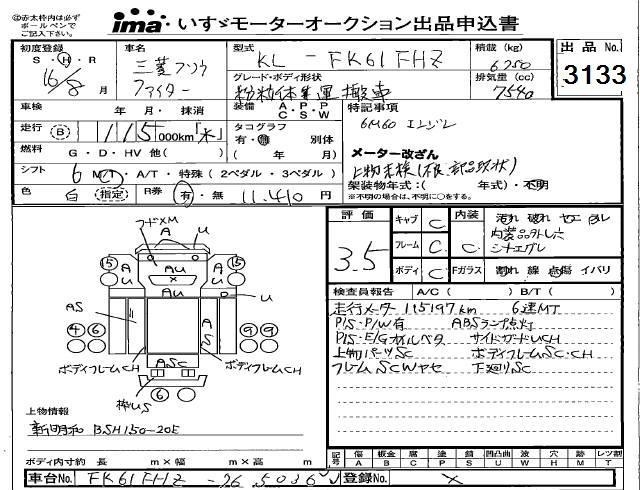 ◎太枠内は必ずボールペンでご記入下さい
ima いすゞモーターオークション出品申込書
初度登録
S・H・R
16/8 月
車名
三菱フソウ
ファイター
型式
KL-FK61FHZ
グレード・ボディ形状
粉粒体運搬車
積載(kg)
6250
排気量(cc)
7540
出品No.
3133
車検 年・月・抹消
装備 A・P・P C・S・W
特記事項
6M60 エンジン
走行 B 115,000km
タコグラフ
有・無 別体
(年 月)
メーター改ざん
燃料 G・D・HV 他( )
シフト 6 M/T・A/T・特殊(2ペダル・3ペダル)
上物未検(不良、部品現状)
架装物年式:( 年式)・不明
※不明の場合は、不明に○をする。
色 白 指定 R券 有・無 11,410円
評価
3.5
キャブ C
フレーム C
ボディ C
内装 C
Fガラス
汚れ 破れ ヤニ
内装品外し穴
シートエグレ
割れ 線 点傷 イバリ
検査員報告 A/C( ) B/T( )
走行メーター 115197km 6速MT
P/S・P/W有 ABSランプ点灯
P/S・E/Gオイルベタ サイドガードUCH
上物パーツSC ボディフレームSC・CH
フレームSCワヤセ 下廻りSC
フードXM
A U
15 A U AU X A U 15
AS
U
4 6
A S
9 9
ボディフレームCH
ASC
ボディフレームCH
棒US 6
上物情報
新明和 BSH150-20E
ボディ内寸約 長 m×幅 m×高 m
記号 傷 A 板金 B 腐 C 塗 P 錆 S 凹凸曲 U 波 W 穴 H 交 X 歪 M 汚 T レツ割
車台No. FK61FHZ-
登録No. X